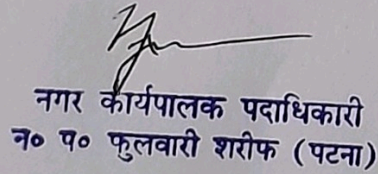 नगर कार्यपालक पदाधिकारी
न० प० फुलवारी शरीफ (पटना)